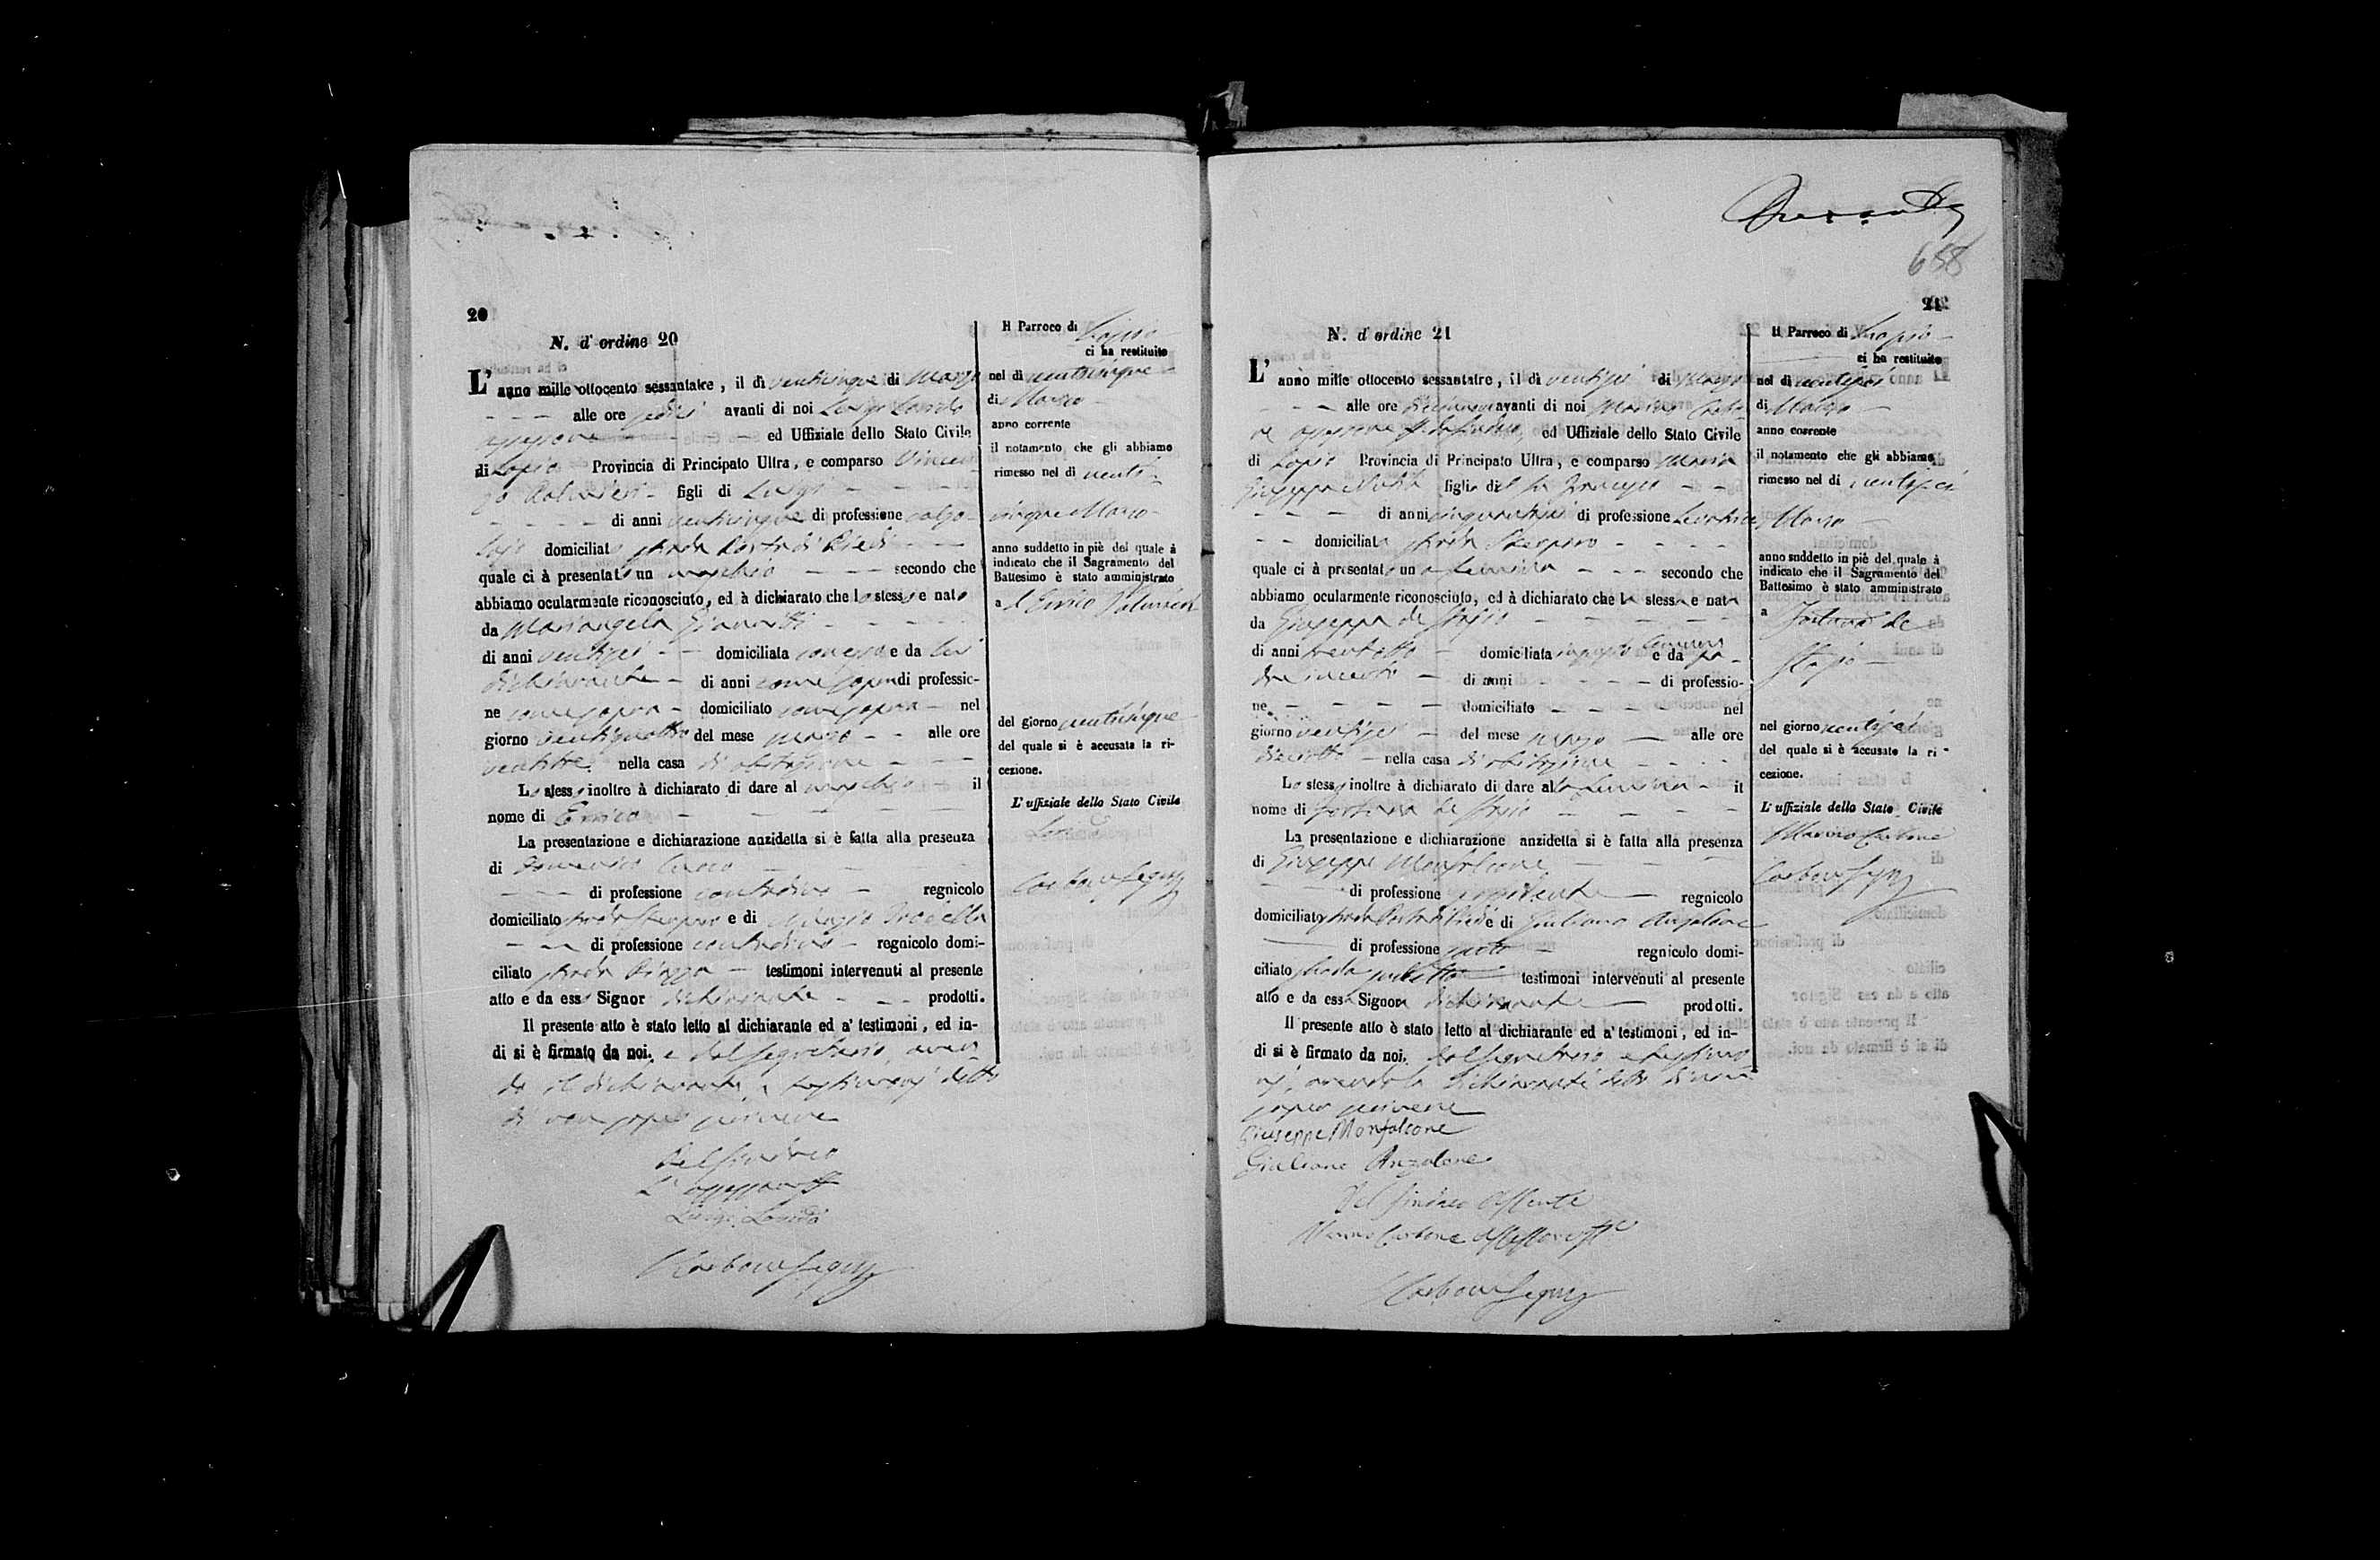 20
N. d'ordine 20
L'anno mille ottocento sessantatre, il dì venticinque di Marzo
alle ore sedici avanti di noi Luigi
ed Uffiziale dello Stato Civile
di Lapio Provincia di Principato Ultra, e comparso Vincen-
zo figli di Luigi
di anni venticinque di professione calzo-
lajo domiciliato strada Porta di Piedi
quale ci à presentato un maschio secondo che
abbiamo ocularmente riconosciuto, ed à dichiarato che lo stesso e nato
da Mariangela
di anni ventisei domiciliata e da lui
dichiarante di anni come sopra di professio-
ne come sopra domiciliato come sopra nel
giorno ventiquattro del mese marzo alle ore
ventitre nella casa di abitazione
Lo stesso inoltre à dichiarato di dare al maschio il
nome di Errico
La presentazione e dichiarazione anzidetta si è fatta alla presenza
di Domenico
di professione contadino regnicolo
domiciliato strada e di
di professione contadino regnicolo domi-
ciliato strada Piazza testimoni intervenuti al presente
atto e da esso Signor dichiarante prodotti.
Il presente atto è stato letto al dichiarante ed a' testimoni, ed in-
di si è firmato da noi, e dal segretario, aven-
do il dichiarante, e testimonj detto
di non saper scrivere
Pel Sindaco
Luigi
Carbone Segr
Il Parroco di Lapio
ci ha restituito
nel dì venticinque
di Marzo
anno corrente
il notamento che gli abbiamo
rimesso nel di venti-
cinque Marzo
anno suddetto in piè del quale à
indicato che il Sagramento del
Battesimo è stato amministrato
a Errico
del giorno venticinque
del quale si è accusata la ri-
cezione.
L'uffiziale dello Stato Civile
Carbone Segr
658
21
N. d'ordine 21
L'anno mille ottocento sessantatre, il dì ventisei di Marzo
alle ore avanti di noi Marino Carbo-
ne ed Uffiziale dello Stato Civile
di Lapio Provincia di Principato Ultra, e comparso Maria
Giuseppa figlia del fu
di anni di professione Levatrice
domiciliata strada
quale ci à presentato una femina secondo che
abbiamo ocularmente riconosciuto, ed à dichiarato che la stessa e nata
da Giuseppa de Stasio
di anni trentotto domiciliata in questo Comune e da pa-
dre incerto di anni di professio-
ne domiciliato nel
giorno ventisei del mese marzo alle ore
nella casa di abitazione
Lo stesso inoltre à dichiarato di dare alla femina il
nome di Fortuna de Stasio
La presentazione e dichiarazione anzidetta si è fatta alla presenza
di Giuseppe Monfalcone
di professione regnicolo
domiciliato strada Porta di Piedi e di Giuliano Anzalone
di professione sarto regnicolo domi-
ciliato strada testimoni intervenuti al presente
atto e da essa Signora dichiarante prodotti.
Il presente atto è stato letto al dichiarante ed a' testimoni, ed in-
di si è firmato da noi, dal segretario, e testimo-
nj, avendo la dichiarante detto di non
saper scrivere
Giuseppe Monfalcone
Giuliano Anzalone
Pel Sindaco assente
Marino Carbone
Carbone Segr
Il Parroco di Lapio
ci ha restituito
nel dì ventisei
di Marzo
anno corrente
il notamento che gli abbiamo
rimesso nel di ventisei
Marzo
anno suddetto in piè del quale à
indicato che il Sagramento del
Battesimo è stato amministrato
a Fortuna de
Stasio
nel giorno ventisei
del quale si è accusato la ri-
cezione.
L'uffiziale dello Stato Civile
Marino Carbone
Carbone Segr